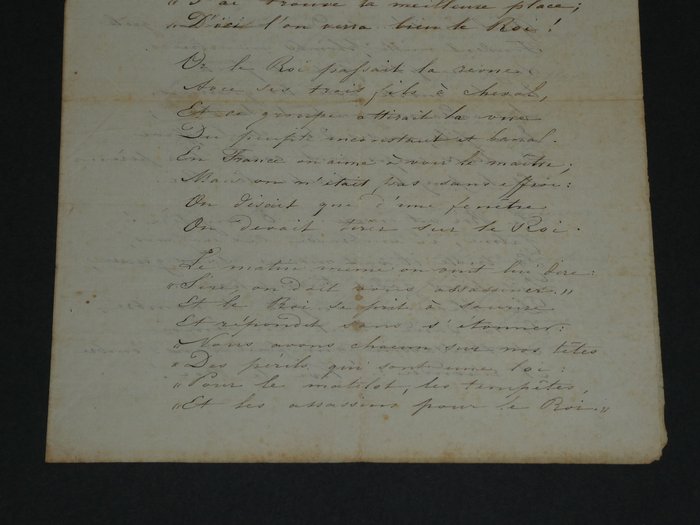 "J'ai trouvé la meilleure place;
"D'ici l'on verra bien le Roi!
Or le Roi passait la revue
Avec ses trois fils à cheval,
Et ce groupe attirait la vue
Du peuple inconstant et banal.
En France on aime à voir le maître;
Mais on n'était pas sans effroi:
On disait que d'une fenêtre
On devait tirer sur le Roi.
Le matin même on vint lui dire:
"Sire on doit vous assassiner."
Et le Roi se prit à sourire
Et répondit sans s'étonner:
"Nous avons chacun sur nos têtes
"Des périls qui sont une loi:
"Pour le matelot, les tempêtes,
"Et les assassins pour le Roi."